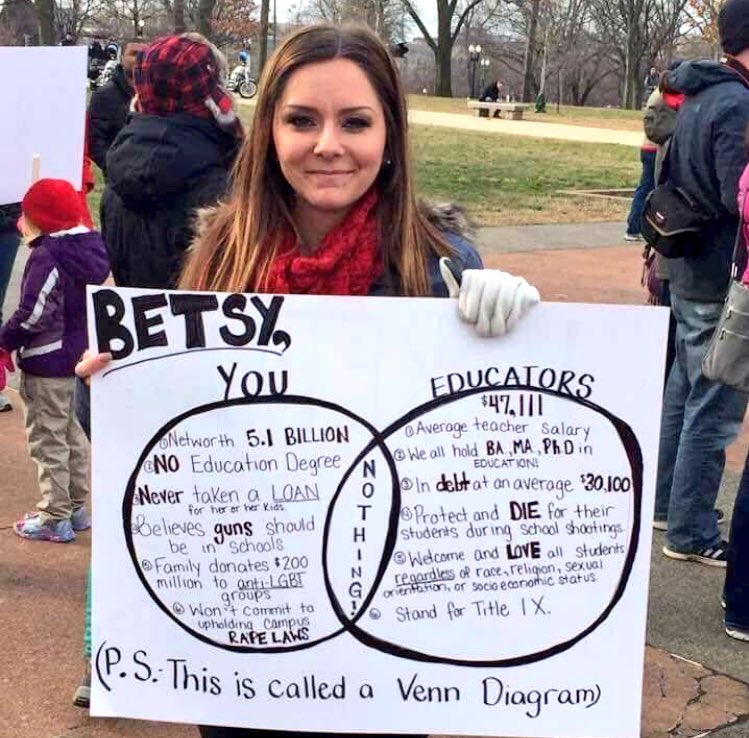 BETSY,
YOU
① Networth 5.1 BILLION
② NO Education Degree
③ Never taken a LOAN
for her or her kids.
④ Believes guns should
be in schools
⑤ Family donates $200
million to anti-LGBT
groups
⑥ Won't commit to
upholding campus
RAPE LAWS
NOTHING!
EDUCATORS
$47,111
① Average teacher salary
② We all hold BA, MA, PhD in
EDUCATION!
③ In debt at an average $30,100
④ Protect and DIE for their
students during school shootings
⑤ Welcome and LOVE all students
regardless of race, religion, sexual
orientation, or socioeconomic status
⑥ Stand for Title IX.
(P.S.- This is called a Venn Diagram)